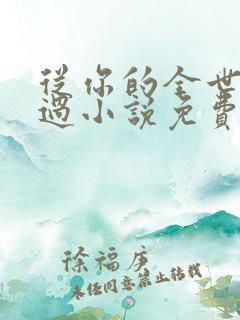 從你的全世
過小說免費
徐福庚
未经同意禁止转载